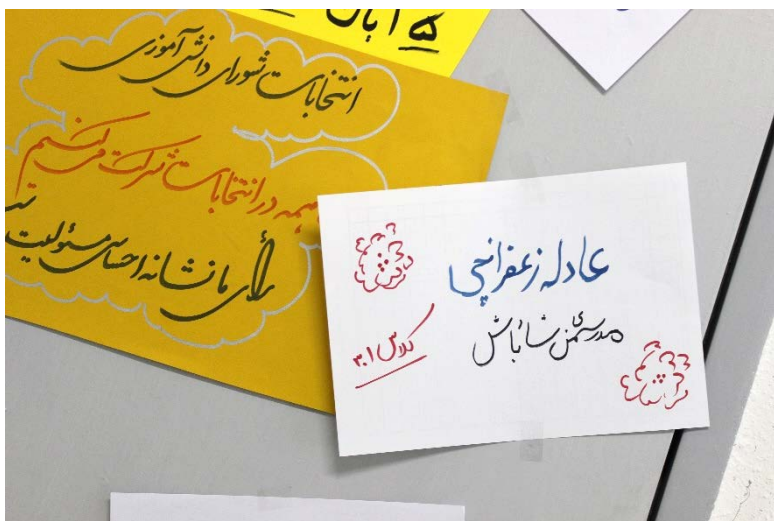 ۵ آبان
انتخابات شورای دانش آموزی
همه در انتخابات شرکت می کنیم
رأی ما نشانه احساس مسئولیت
عادله زعفرانچی
مدرسه من شاد باش
کلاس ۳۰۱